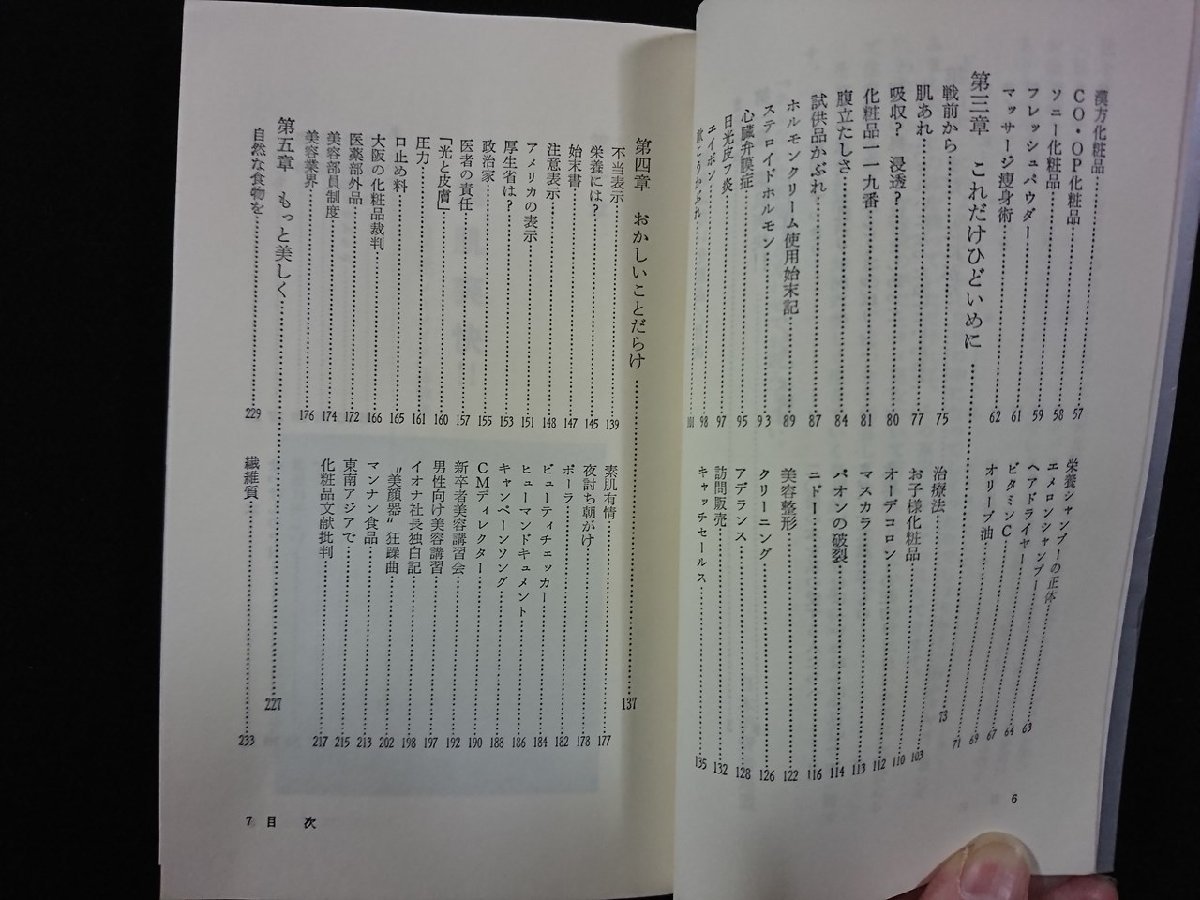 漢方化粧品……57
CO・OP化粧品……58
ソニー化粧品……59
フレッシュパウダー……61
マッサージ痩身術……62
栄養シャンプーの正体……63
エメロンシャンプー……64
ヘアドライヤー……67
ビタミンC……69
オリーブ油……71
第三章　これだけひどいめに……73
戦前から……75
肌あれ……77
吸収？　浸透？……80
化粧品一一九番……81
腹立たしさ……84
試供品かぶれ……87
ホルモンクリーム使用始末記……89
ステロイドホルモン……93
心臓弁膜症……95
日光皮フ炎……97
エイボン……98
……101
治療法……103
お子様化粧品……110
オーデコロン……112
マスカラ……113
パオンの破裂……114
ニドー……116
美容整形……122
クリーニング……126
アデランス……128
訪問販売……132
キャッチセールス……135
6
第四章　おかしいことだらけ……137
不当表示……139
栄養には？……145
始末書……147
注意表示……148
アメリカの表示……151
厚生省は？……153
政治家……155
医者の責任……157
「光と皮膚」……160
圧力……161
口止め料……165
大阪の化粧品裁判……166
医薬部外品……172
美容部員制度……174
美容業界……176
素肌有情……177
夜討ち朝がけ……178
ポーラ……182
ビューティチェッカー……184
ヒューマンドキュメント……186
キャンペーンソング……188
CMディレクター……190
新卒者美容講習会……192
男性向け美容講習……197
イオナ社長独白記……198
“美顔器”狂躁曲……202
マンナン食品……213
東南アジアで……215
化粧品文献批判……217
第五章　もっと美しく……227
自然な食物を……229
繊維質……233
7　目　次